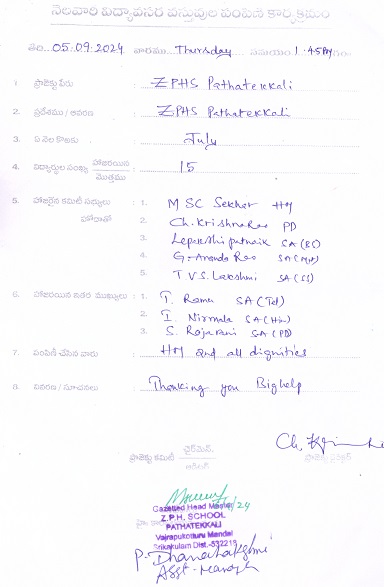 నెలవారి విద్యావసర వస్తువుల పంపిణి కార్యక్రమం
తేది. 05.09.2024 వారము Thursday సమయం 1.45PM గం
1. ప్రాజెక్టు పేరు : ZPHS Pathatekkali
2. ప్రదేశము / ఆవరణ : ZPHS Pathatekkali
3. ఏ నెల కొరకు : July
4. విద్యార్థుల సంఖ్య హాజరయిన / మొత్తము : 15
5. హాజరైన కమిటీ సభ్యులు : 1. M SC Sekhar HM
హోదాతో 2. Ch. Krishna Rao PD
3. Lepakshi patnaik SA (BS)
4. G. Ananda Rao
5. T V S. Lakshmi SA (SS)
6. హాజరయిన ఇతర ముఖ్యులు : 1. T. Ramu SA (Tel)
2. I. Nirmala SA (Hin)
3. S. Rajarani SA (PD)
7. పంపిణి చేసిన వారు : HM and all dignities
8. వివరణ / సూచనలు : Thanking you Bighelp
ప్రాజెక్టు కమిటీ ఛైర్మెన్.
ప్రాజెక్టు డైరెక్టర్
Gazetted Head Master
Z.P.H. SCHOOL
PATHATEKKALI
Vajrapukotturu Mandal
Srikakulam Dist.-532219
P. Dhanalakshmi
Asst-Manager